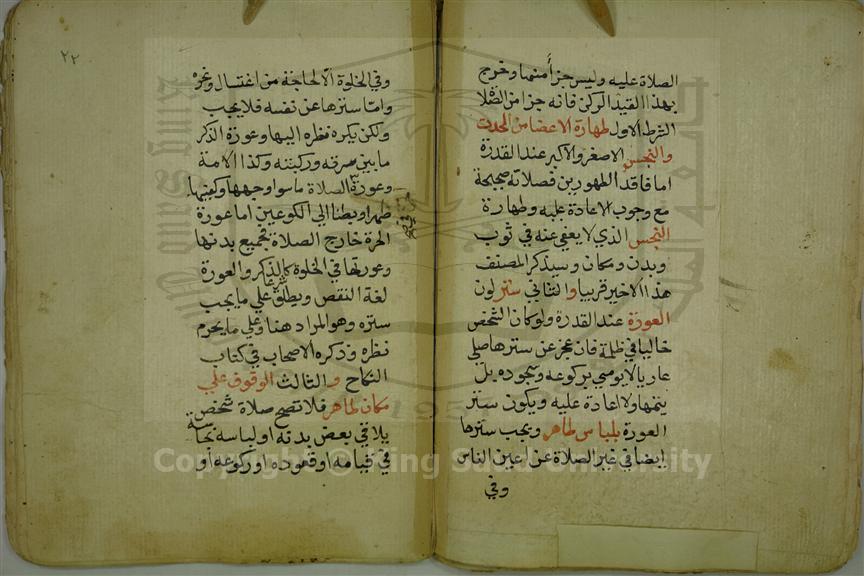 الصلاة عليه وليس جزأ منها وخرج
بهذا القيد الركن فانه جزا من الصلا
الشرط الاول طهارة الاعضا من الحدث
والنجس الاصغر والاكبر عند القدرة
اما فاقد الطهورين فصلاته صحيحة
مع وجوب الاعادة عليه وطهارة
النجس الذي لا يعفي عنه في ثوب
وبدن ومكان وسيذكر المصنف
هذا الاخير قريبا والثاني ستر لون
العورة عند القدرة ولو كان الشخص
خاليا في ظلمة فان عجز عن سترها صلي
عاريا لا يومي بركوعه وسجوده بل
يتمها ولا اعادة عليه ويكون ستر
العورة بلباس طاهر ويجب سترها
ايضا في غير الصلاة عن اعين الناس
وفي
٢٢
وفي الخلوة الا لحاجة من اغتسال ونحوه
واما سترها عن نفسه فلا يجب
ولكن يكره نظره اليها وعورة الذكر
ما بين سرته وركبته وكذا الامة
وعورة الصلاة ما سوا وجهها وكفيها
ظهرا وبطنا الي الكوعين اما عورة
الحرة خارج الصلاة فجميع بدنها
وعورتها في الخلوة كالذكر والعورة
لغة النقص وتطلق علي ما يجب
ستره وهو المراد هنا وعلي ما يحرم
نظره وذكره الاصحاب في كتاب
النكاح والثالث الوقوف علي
مكان طاهر فلا تصح صلاة شخص
يلاقي بعض بدنه او لباسه نجاسة
في قيامه او قعوده او ركوعه او
Copyright © King Saud University
1957